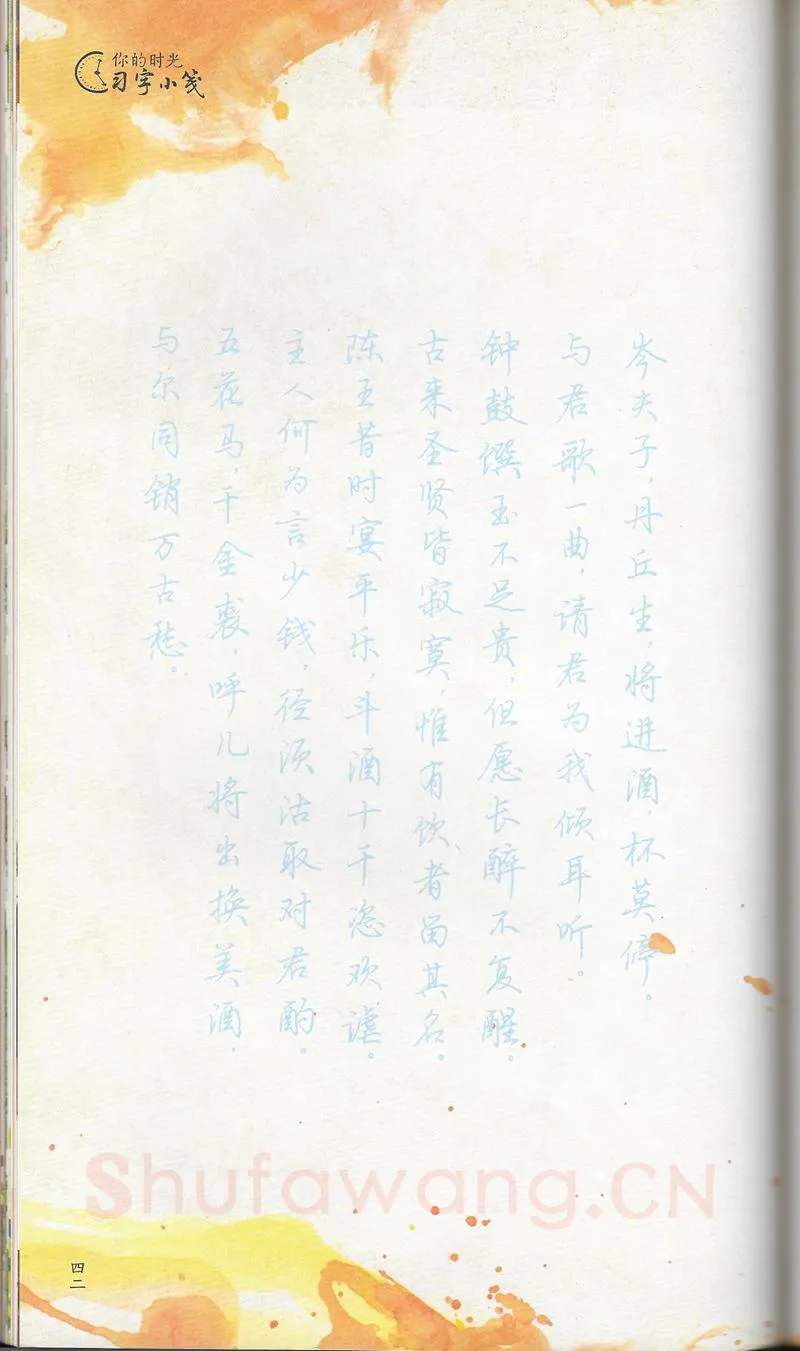 你的时光
习字小笺
岑夫子，丹丘生，将进酒，杯莫停。
与君歌一曲，请君为我倾耳听。
钟鼓馔玉不足贵，但愿长醉不复醒。
古来圣贤皆寂寞，惟有饮者留其名。
陈王昔时宴平乐，斗酒十千恣欢谑。
主人何为言少钱，径须沽取对君酌。
五花马，千金裘，呼儿将出换美酒。
与尔同销万古愁。
Shufawang.CN
四二